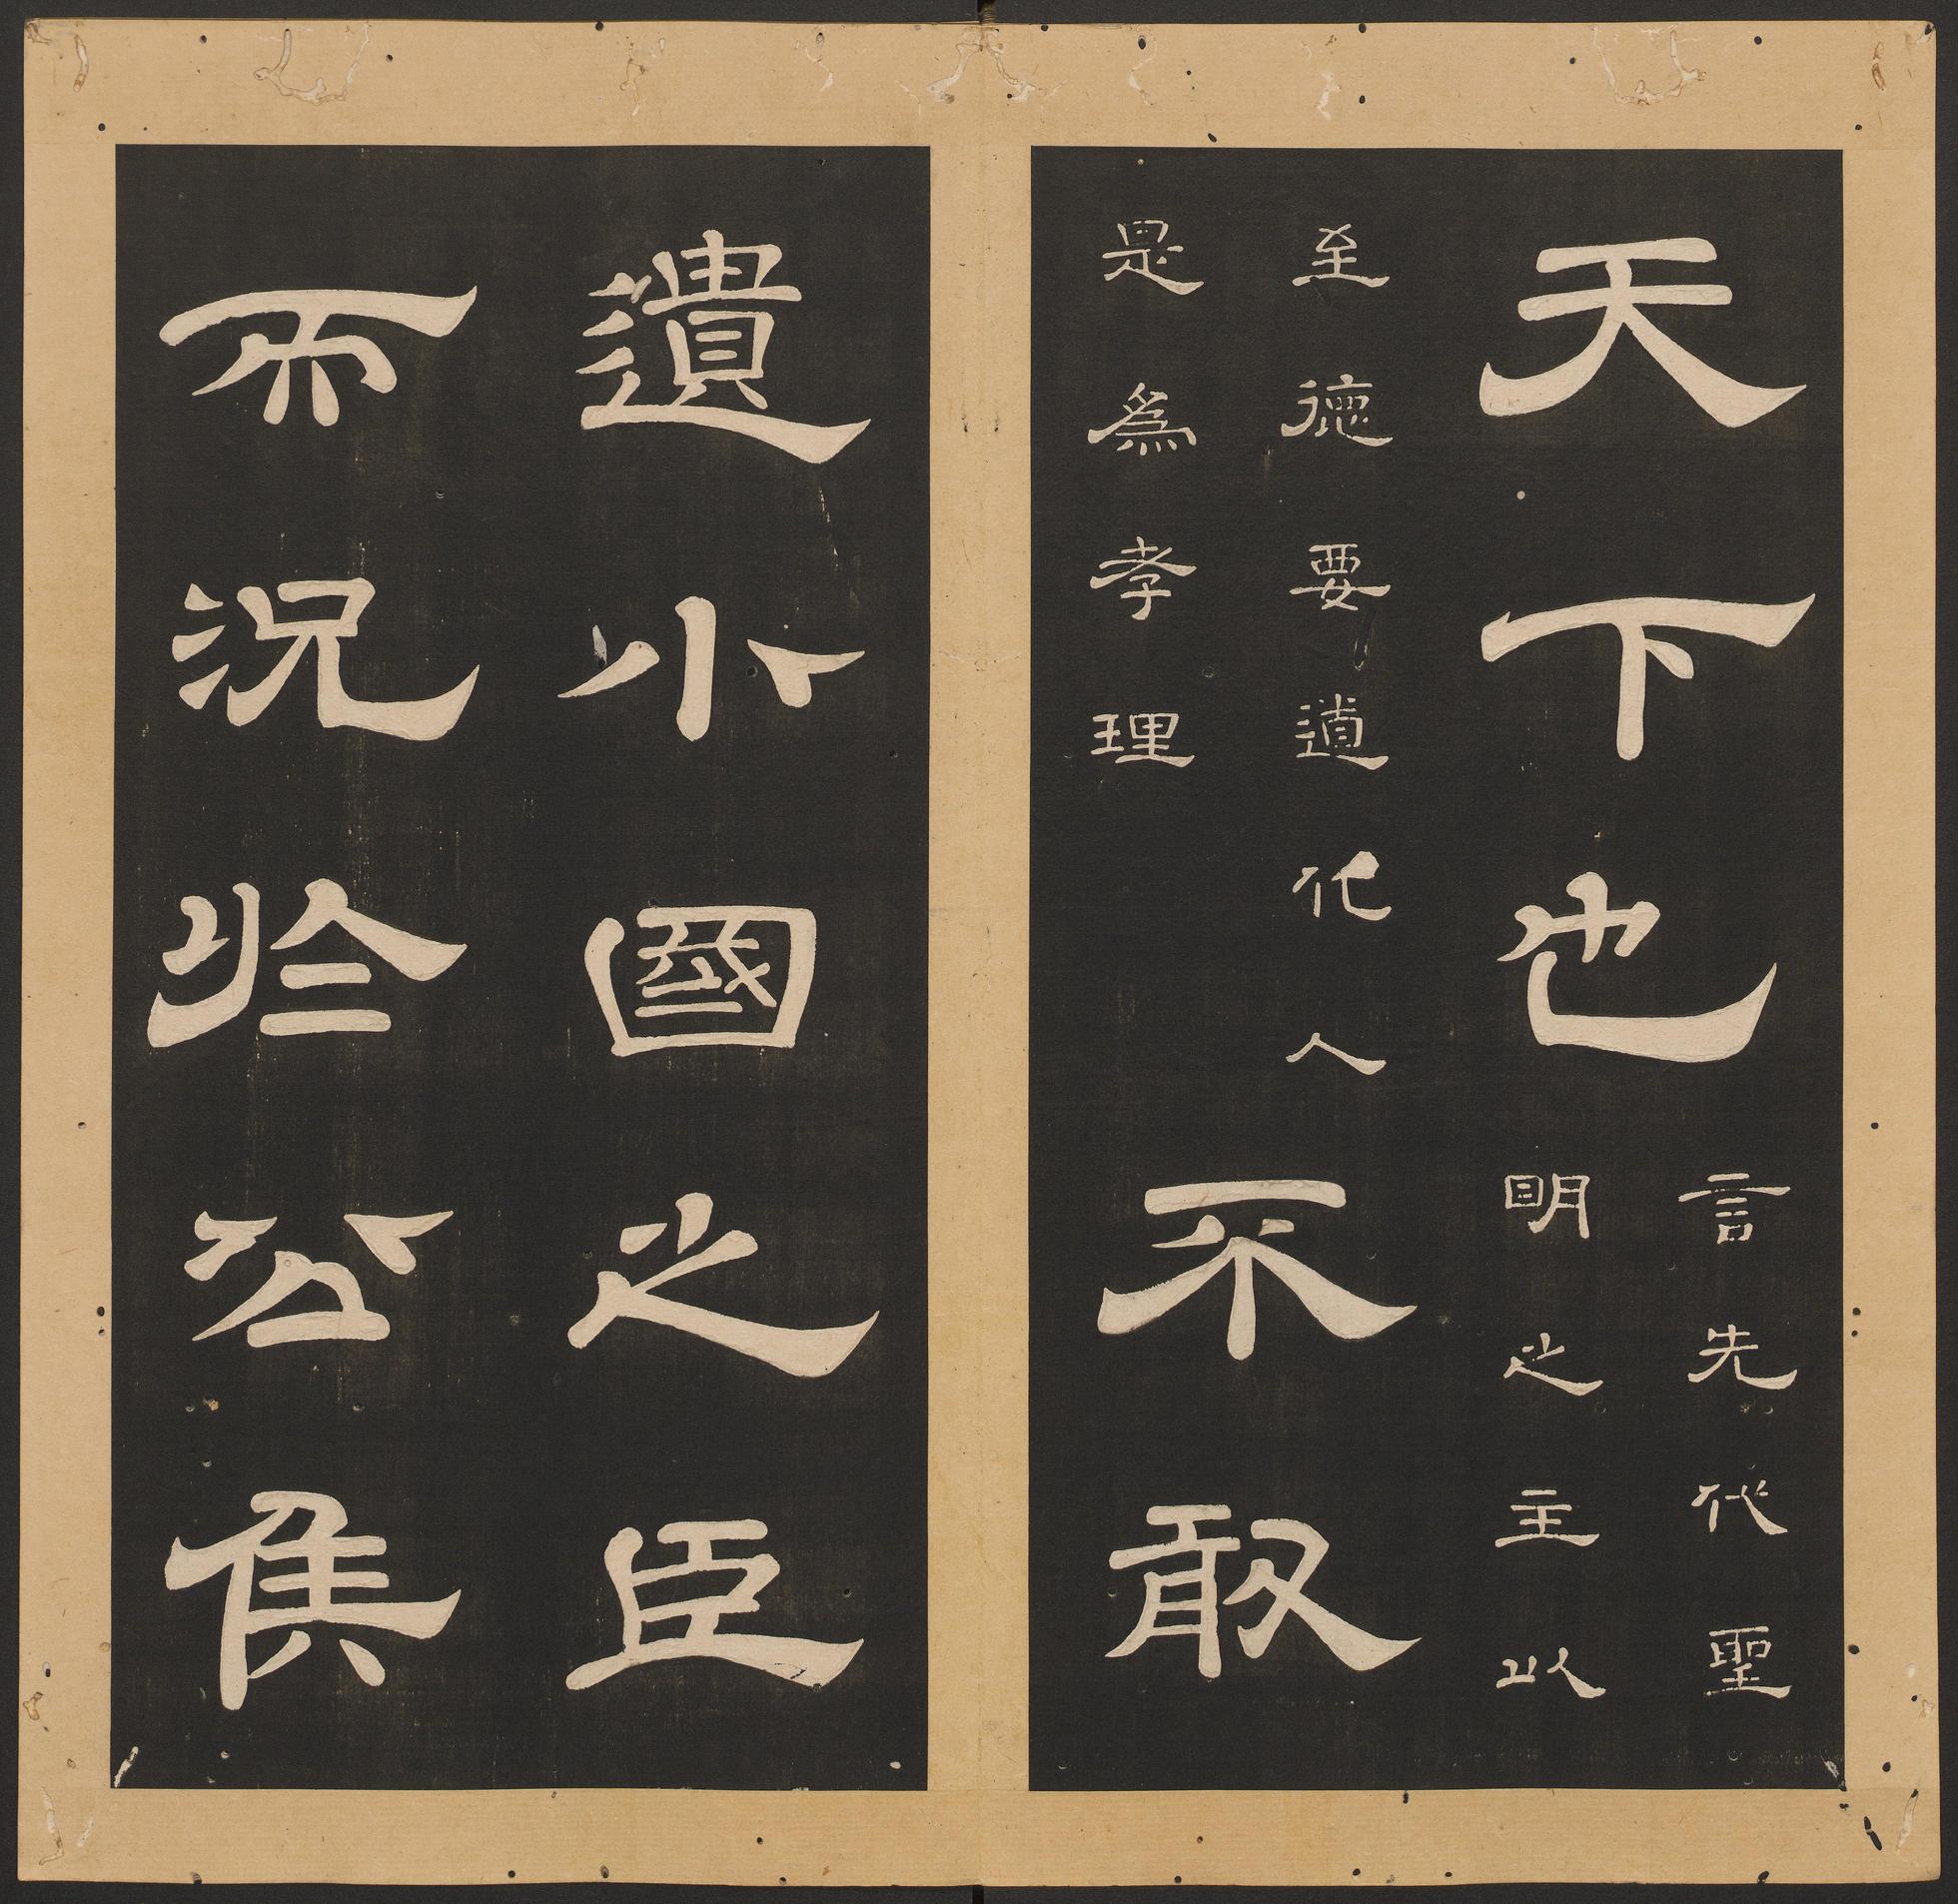 天下也
言先代聖
明之主以
至德要道化人
是爲孝理
不敢
遺小國之臣
而況於公侯